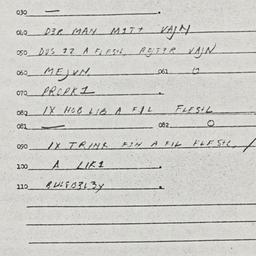 030 —
040 DER MAN MITT VAJN
050 DOS IZ A FLESHL, ROJTER VAJN
060 MEJVN. 061 0
070 PROPKI
080 IX HOB LIB A FIL FLESHL
081 — 082 0
090 IX TRINK FIN A FIL FLESHL /
100 A LIKI
110